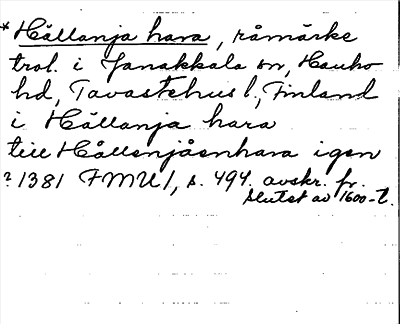 *Hållanja hara, råmärke
trol. i Janakkala sn, Hauho
hd, Tavastehus l., Finland
i Hållanja hara
till Hållenjåenhara igen
? 1381 FMU 1, s. 494. avskr. fr.
slutet av 1600-t.